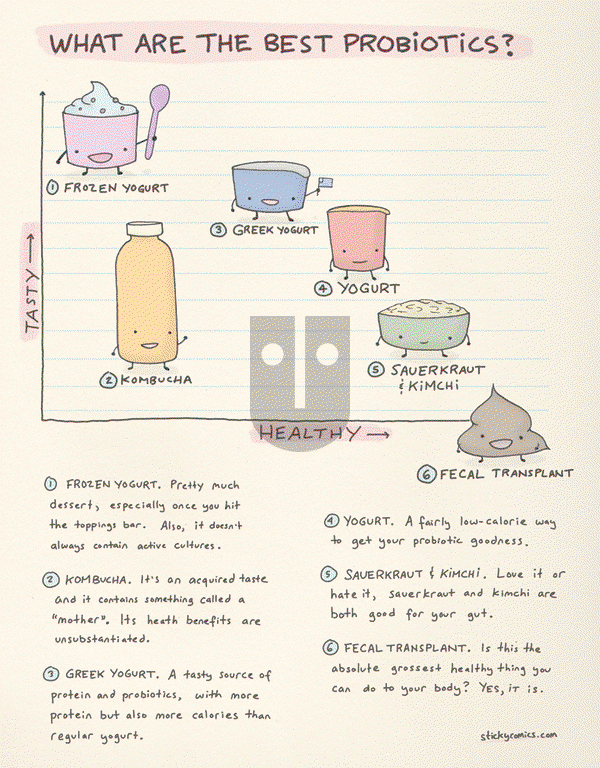 WHAT ARE THE BEST PROBIOTICS?
① FROZEN YOGURT
③ GREEK YOGURT
④ YOGURT
TASTY →
② KOMBUCHA
⑤ SAUERKRAUT
& KIMCHI
HEALTHY →
⑥ FECAL TRANSPLANT
① FROZEN YOGURT. Pretty much
dessert, especially once you hit
the toppings bar. Also, it doesn't
always contain active cultures.
② KOMBUCHA. It's an acquired taste
and it contains something called a
"mother". Its heath benefits are
unsubstantiated.
③ GREEK YOGURT. A tasty source of
protein and probiotics, with more
protein but also more calories than
regular yogurt.
④ YOGURT. A fairly low-calorie way
to get your probiotic goodness.
⑤ SAUERKRAUT & KIMCHI. Love it or
hate it, sauerkraut and kimchi are
both good for your gut.
⑥ FECAL TRANSPLANT. Is this the
absolute grossest healthy thing you
can do to your body? YES, IT IS.
stickycomics.com